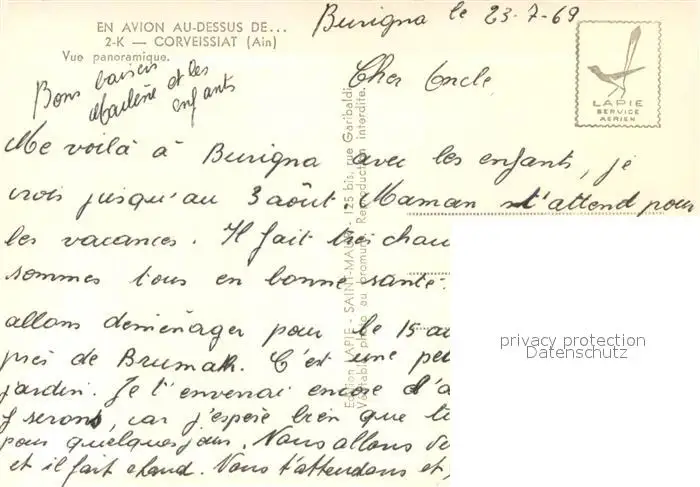 EN AVION AU-DESSUS DE...
2-K — CORVEISSIAT (Ain)
Vue panoramique.
Burigna le 23-7-69
LAPIE
SERVICE
AERIEN
Bons baisers
Marlène et les
enfants
Cher Oncle,
Me voilà à Burigna avec les enfants, je
crois jusqu'au 3 août. Maman t'attend pour
les vacances. Il fait très chau
sommes tous en bonne santé.
allons déménager pour le 15 ao
près de Brumath. C'est une pe
jardin. Je t'enverrai encore d'a
y serons, car j'espère bien que t
pour quelques jours. Nous allons
et il fait chaud. Nous t'attendons et
Edition LAPIE - SAINT-MAUR - 125 bis, rue Garibaldi
Véritable photo au bromure. Reproduction interdite.
privacy protection
Datenschutz